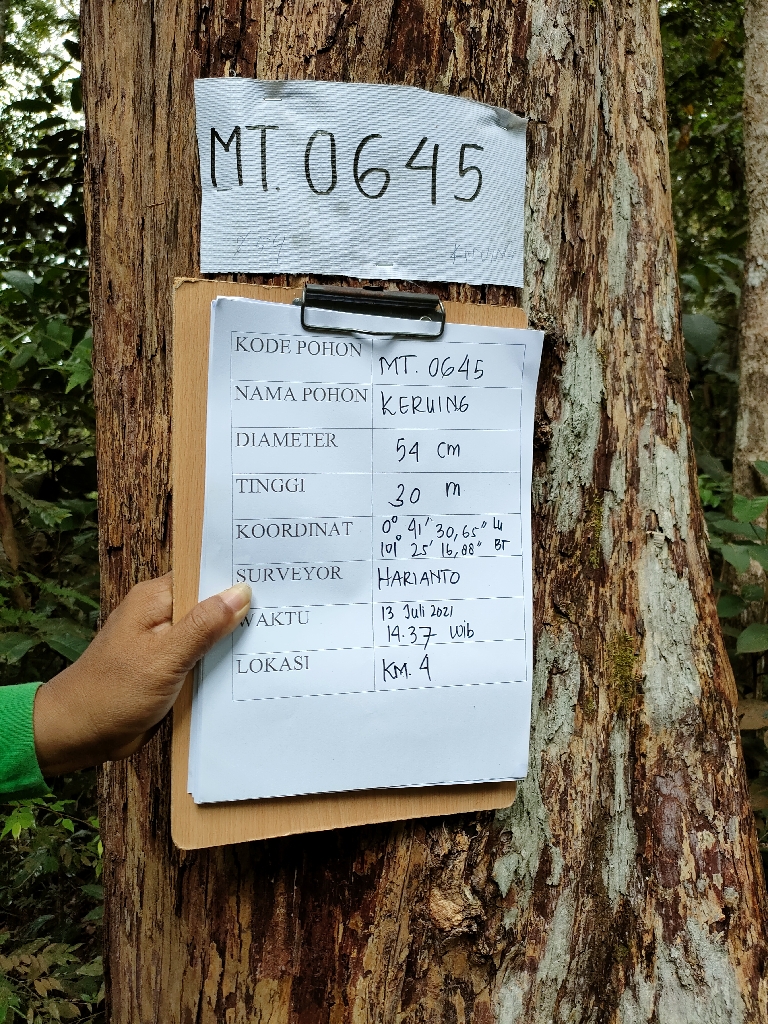 MT. 0645
KODE POHON MT. 0645
NAMA POHON KERUING
DIAMETER 54 cm
TINGGI 30 m
KOORDINAT 0° 41" 30,65" LU
101° 25' 16,88" BT
SURVEYOR HARIANTO
WAKTU 13 Juli 2021
14.37 Wib
LOKASI KM. 4